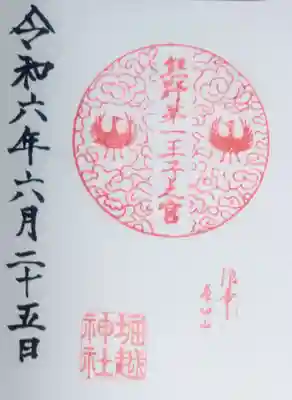 熊野第一王子之宮
堀越
神社
令和六年六月二十五日